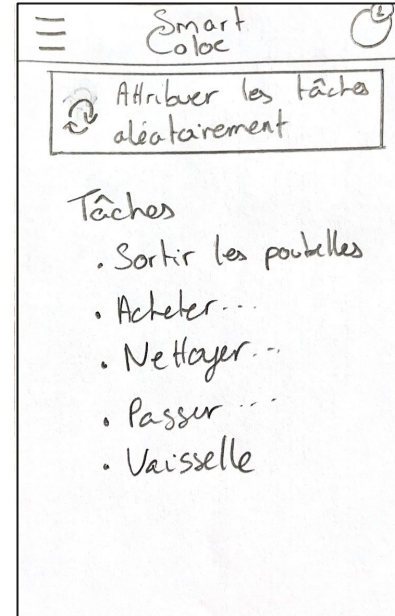 Smart
Coloc
1
Attribuer les tâches
aléatoirement
Tâches
. Sortir les poubelles
. Acheter...
. Nettoyer...
. Passer ...
. Vaisselle